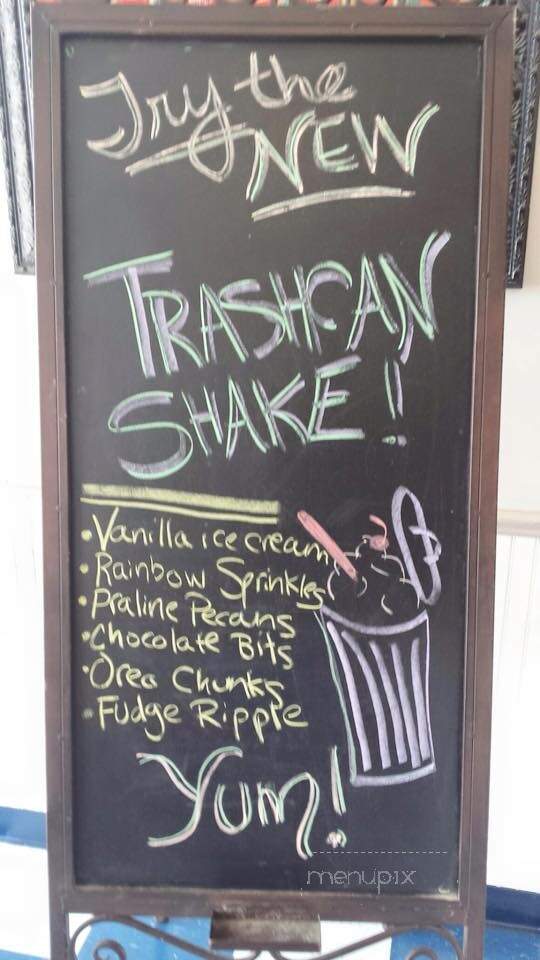 Try the
NEW
TRASHCAN
SHAKE!
• Vanilla ice cream
• Rainbow Sprinkles
• Praline Pecans
• Chocolate Bits
• Oreo Chunks
• Fudge Ripple
Yum!
menupix